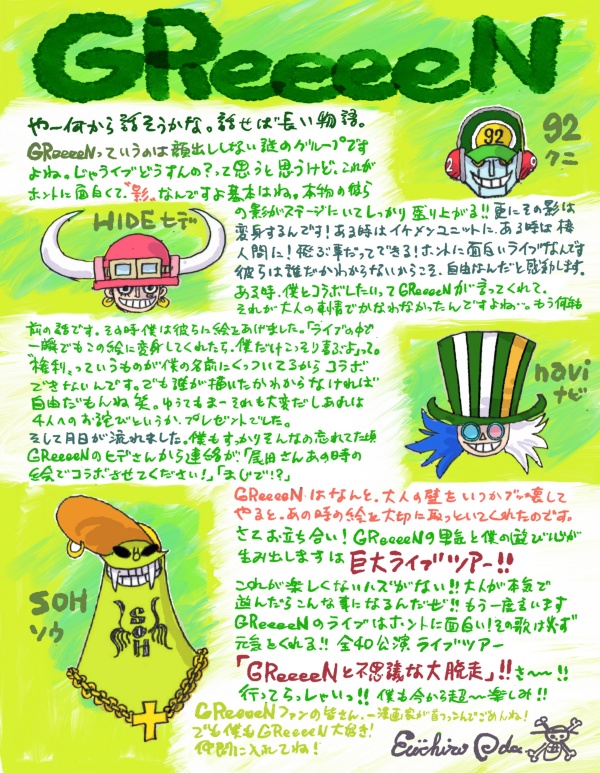 GReeeeN
やー何から話そうかな。話せば長い物語。
GReeeeNっていうのは顔出ししない謎のグループです
よね。じゃライブどうすんの？って思うと思うけど、これが
ホントに面白くて"影"なんですよ基本はね。本物の彼ら
の影がステージにいてしっかり盛り上がる!!更にその影は
変身するんです！ある時はイケメンユニットに、ある時は棒
人間に！飛ぶ事だってできる！ホントに面白いライブなんです
彼らは誰だかわからないからこそ、自由なんだと感動します。
ある時、僕とコラボしたいってGReeeeNが言ってくれて、
それが大人の刺害でかなわなかったんですよね…。もう何年も
前の話です。その時僕は彼らに絵をあげました。「ライブの中で
一瞬でもこの絵に変身してくれたら、僕だけこっそり喜ぶよ」って。
"権利"っていうものが僕の名前にくっついてるからコラボ
できないんです。でも誰が描いたかわからなければ
自由だもんね笑。ゆうてもまーそれも大変だしあれは
4人へのお詫びというか、プレゼントでした。
そして月日が流れました。僕もすっかりそんなの忘れてた頃
GReeeeNのヒデさんから連絡が「尾田さんあの時の
絵でコラボさせてください！」「まじで!?」
GReeeeNはなんと、大人の壁をいつかブッ壊して
やると、あの時の絵を大切に取っといてくれたのです。
さてお立ち合い！GReeeeNの勇気と僕の遊び心が
生み出しますは 巨大ライブツアー!!
これが楽しくないハズがない!!大人が本気で
遊んだらこんな事になるんだぜ!!もう一度言います
GReeeeNのライブはホントに面白い!その歌は必ず
元気をくれる!!全40公演ライブツアー
「GReeeeNと不思議な大脱走」!!さ〜〜!!
行ってらっしゃいっ!!僕も今から超〜楽しみ!!
GReeeeNファンの皆さん、一漫画家が首つっこんでごめんね！
でも僕もGReeeeN大好き！
仲間に入れてね！
Eiichiro Oda
92
92
2
クニ
HIDE ヒデ
navi
ナビ
SOH
ソウ
SOH